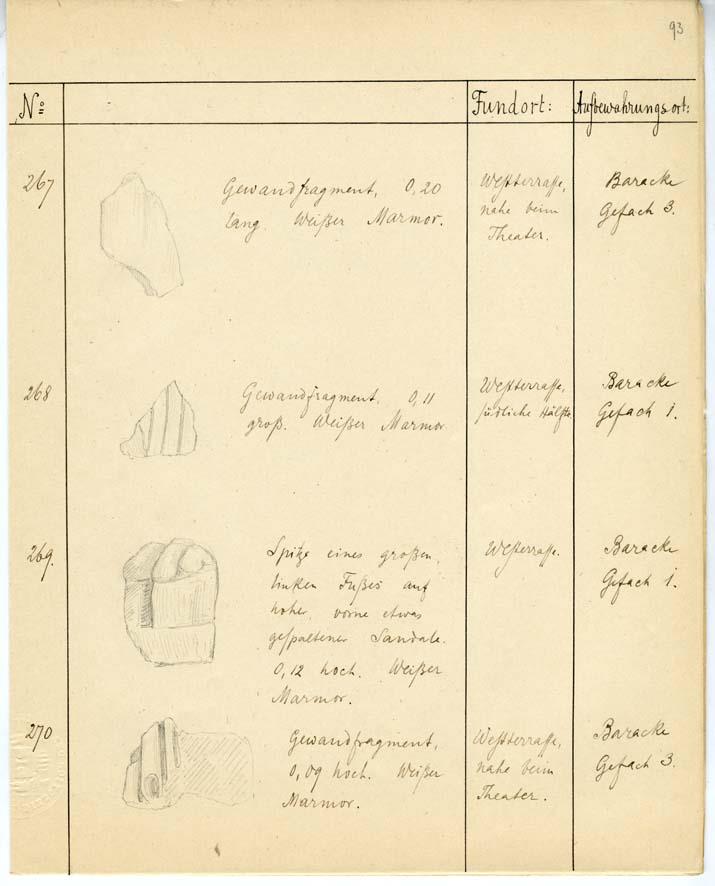 93
Nº Fundort: Aufbewahrungsort:
267
Gewandfragment, 0,20
lang. Weißer Marmor.
Westterrasse,
nahe beim
Theater.
Baracke
Gefach 3.
268
Gewandfragment, 0,11
groß. Weißer Marmor.
Westterrasse,
südliche Hälfte
Baracke
Gefach 1.
269.
Spitze eines großen,
linken Fußes auf
hoher, vorne etwas
gespaltener Sandale.
0,12 hoch. Weißer
Marmor.
Westerrasse.
Baracke
Gefach 1.
270
Gewandfragment,
0,09 hoch. Weißer
Marmor.
Westterrasse,
nahe beim
Theater.
Baracke
Gefach 3.